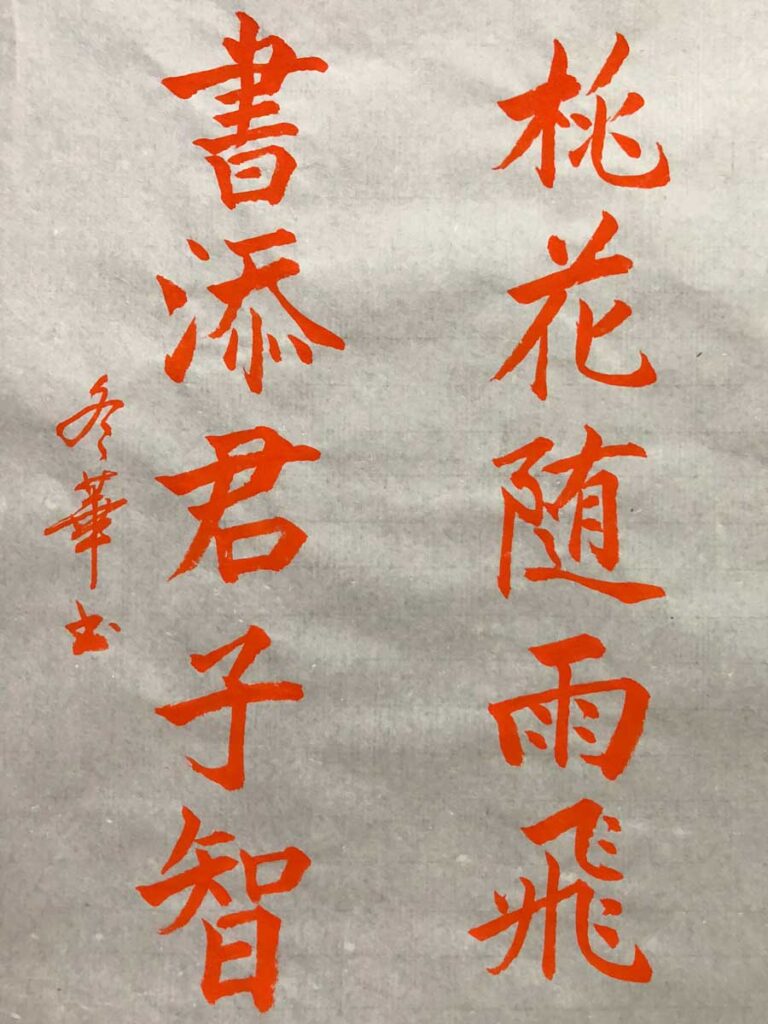 桃花随雨飛
書添君子智
冬華书